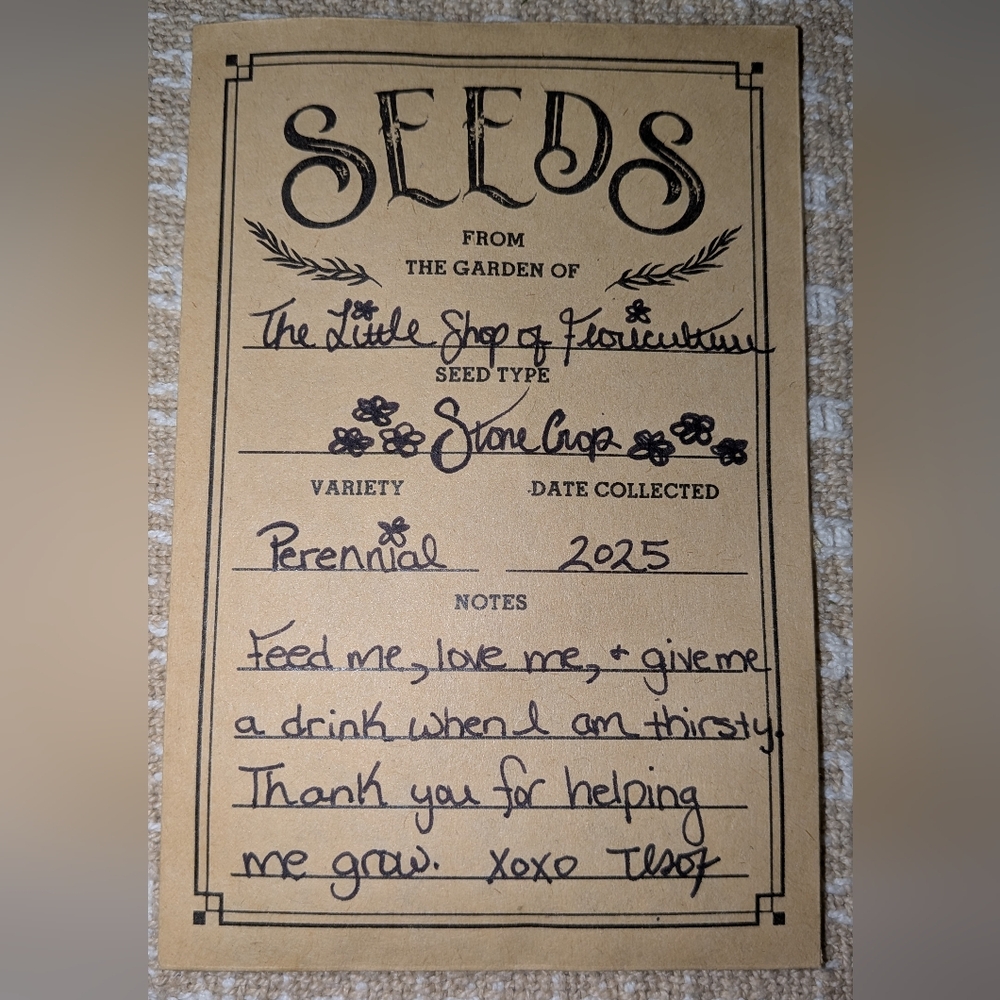 SEEDS
FROM
THE GARDEN OF
The Little Shop of Floriculture
SEED TYPE
Stone Crop
VARIETY DATE COLLECTED
Perennial 2025
NOTES
Feed me, love me, + give me
a drink when I am thirsty.
Thank you for helping
me grow. xoxo TLSOF